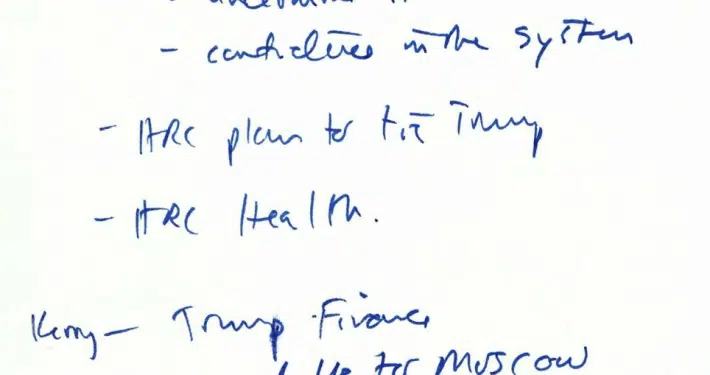 - candidates in the system
- HRC plan to tie Trump
- HRC Health.
Kerry - Trump Finance
to Moscow